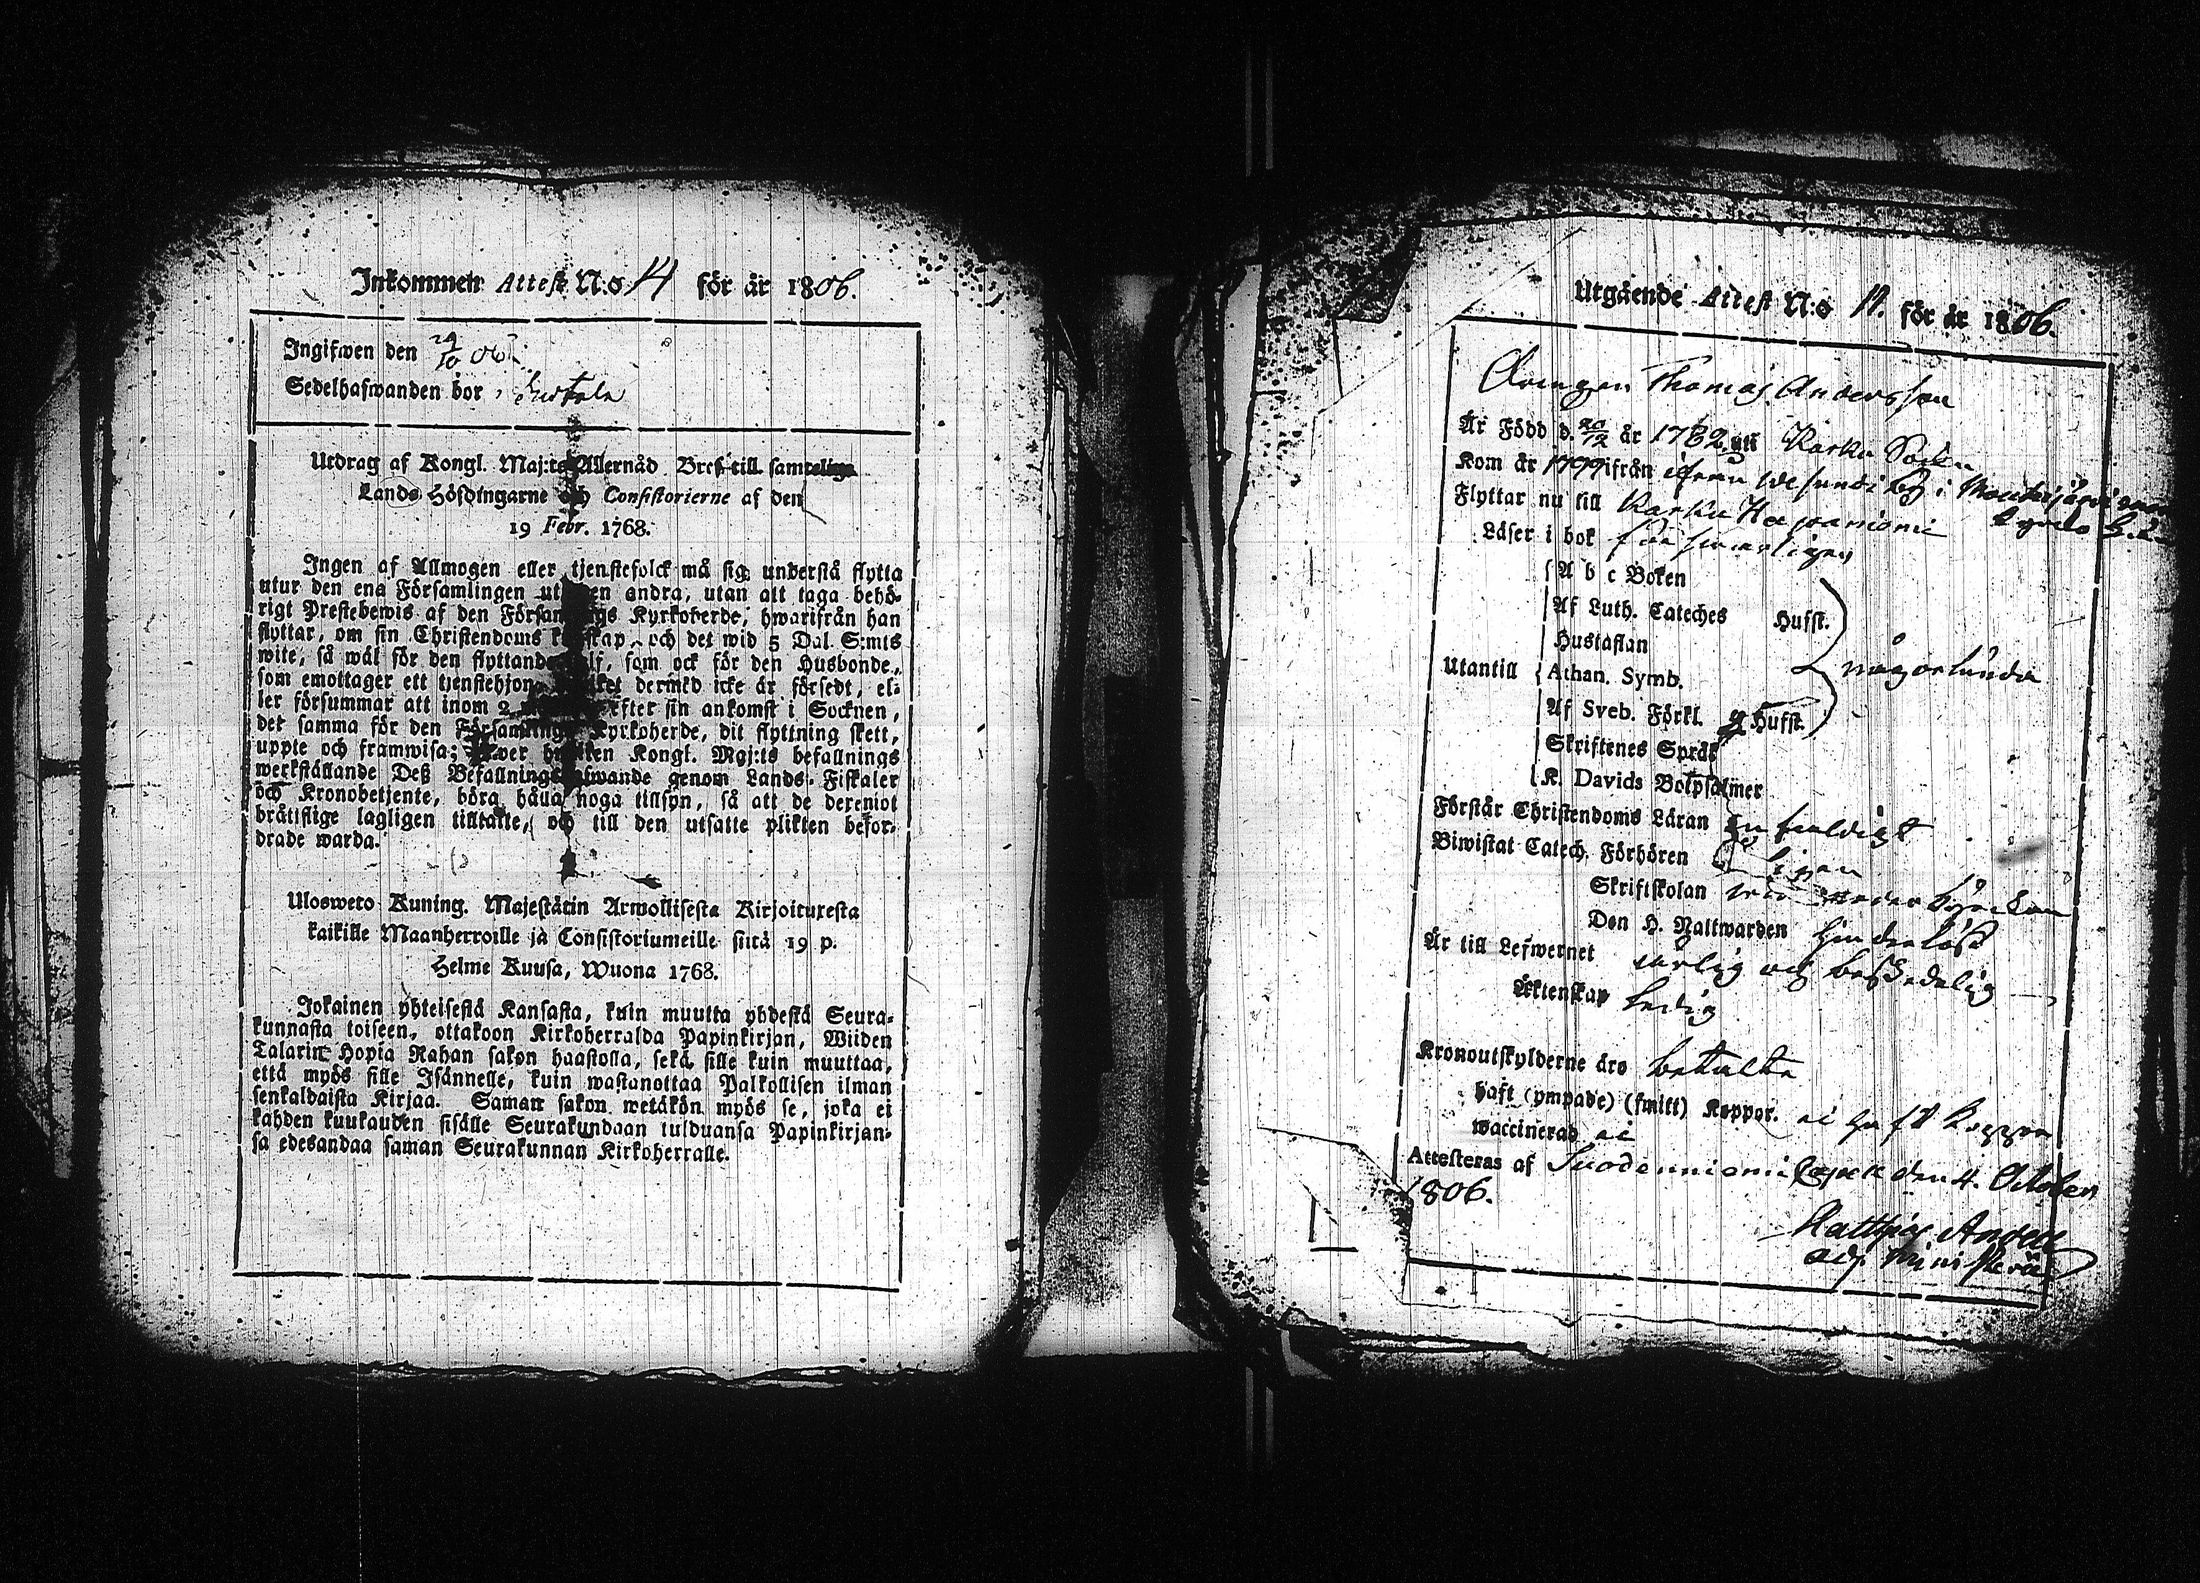 Inkommen Attest N:o 14 för år 1806.
Ingifwen den 24/10 06.
Sedelhafwanden bor i
Utdrag af Kongl. Maj:ts Allernåd. Bref till samtelige
Lands Höfdingarne och Consistorierne af den
19 Febr. 1768.
Ingen af Allmogen eller tjenstefolck må sig understå flytta
utur den ena Församlingen uti den andra, utan att taga behö-
rigt Prestebewis af den Församlings Kyrkoherde, hwarifrån han
flyttar, om sin Christendoms kunskap, och det wid 5 Dal. S:mts
wite, så wäl för den flyttande sjelf, som ock för den Husbonde,
som emottager ett tjenstehjon, hwilket dermed icke är försedt, el-
ler försummar att inom 2 efter sin ankomst i Socknen,
det samma för den Församlings Kyrkoherde, dit flyttning skett,
uppte och framwisa; hwilken Kongl. Maj:ts befallnings
werkställande Deß Befallningshafwande genom Lands-Fiskaler
och Kronobetjente, böra hålla noga tillsyn, så att de deremot
bråtslige lagligen tilltalte, och till den utsatte plikten befor-
drade warda.
Ulosweto Kuning. Majestätin Arwollisesta Kirjoituxesta
kaikille Maanherroille ja Consistoriumeille siitä 19 p.
Helme Kuusa, Wuona 1768.
Jokainen yhteisestä Kansasta, kuin muutta yhdestä Seura-
kunnasta toiseen, ottakoon Kirkoherralda Papinkirjan, Wiiden
Talarin Hopia Rahan sakon haastolla, sekä sille kuin muuttaa,
että myös sille Isännelle, kuin wastanottaa Palkollisen ilman
senkaldaista Kirjaa. Saman sakon wetäkön myös se, joka ei
kahden kuukauden sisälle Seurakundaan tulduansa Papinkirjan-
sa edesandaa saman Seurakunnan Kirkoherralle.
Utgående Attest N:o 11. för år 1806.
Drengen Thomas Andersson
Är Född d. 20/12 år 1782 uti Karku Socken
Kom år 1799 ifrån
Flyttar nu till Karku
Läser i bok förswarligen
A b c Boken
Af Luth. Cateches Hufst.
Hustaflan
Utantill Athan. Symb. någorlunda
Af Sveb. Förkl. Hufst.
Skriftenes Språk
K. Davids Botpsalmer
Förstår Christendoms Läran enfaldigt
Biwistat Catech. Förhören
Skriftskolan
Den H. Nattwarden
Är till Lefwernet ärlig och beskedelig
Äktenskap ledig
Kronoutskylderne äro betalte
haft (ympade) (smitt) Koppor. ei haft koppor
waccinerad ei
Attesteras af Suodenniemi Capell den 4. October
1806.
Matthias
adj. ministerii